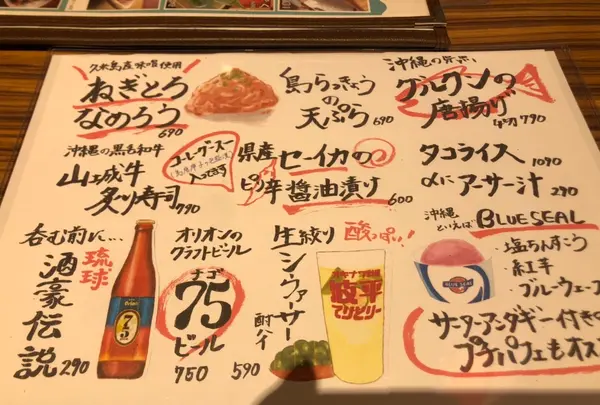 久米島産味噌使用
ねぎとろ
なめろう
690
島らっきょう
の
天ぷら 690
沖縄の県魚
グルクンの
唐揚げ
790
沖縄の黒毛和牛
山城牛
炙り寿司 790
コーレーグースー
入ってます
県産
ピリ辛
セーイカの
醤油漬け 600
タコライス 1090
αにアーサー汁 290
呑む前に…
琉球
酒豪伝説 290
75
オリオンの
クラフトビール
75
ビール
750
生絞り
酸っぱい!
シークヮーサー
酎ハイ
590
てりとりー
沖縄
といえば BLUE SEAL
BLUE SEAL
・塩ちんすこう
・紅芋
・ブルーウェーブ
サーターアンダギー付きの
プチパフェもオス